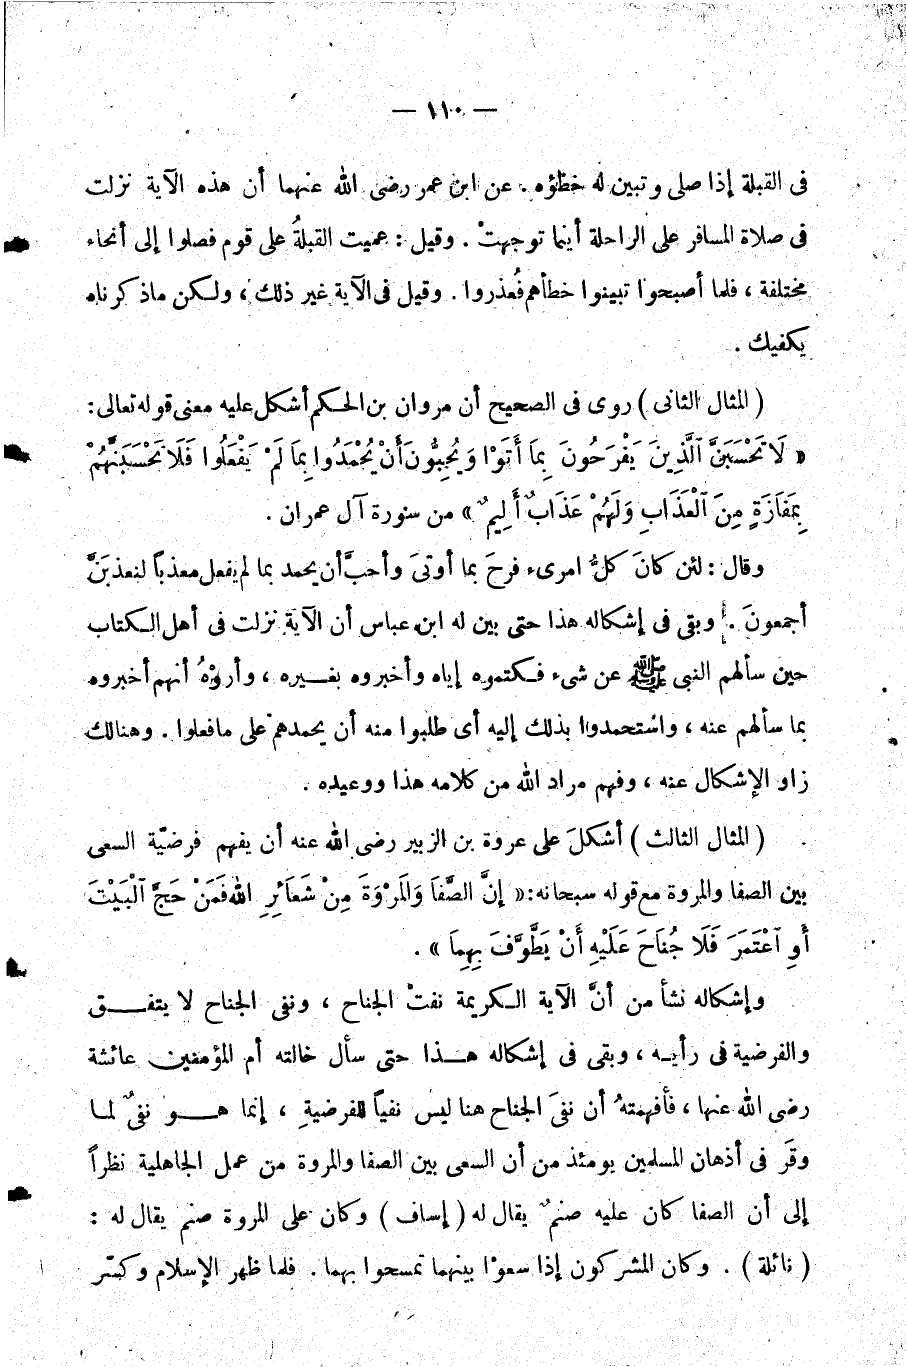 — ١١٠ —
فى القبلة إذا صلى وتبين له خطؤه . عن ابن عمر رضى الله عنهما أن هذه الآية نزلت
فى صلاة المسافر على الراحلة أينما توجهتْ . وقيل : عميت القبلةُ على قوم فصلوا إلى أنحاء
مختلفة ، فلما أصبحوا تبينوا خطأهم فعُذروا . وقيل فى الآية غير ذلك ، ولكن ماذكرناه
يكفيك .
( المثال الثانى ) روى فى الصحيح أن مروان بن الحكم أشكل عليه معنى قوله تعالى :
« لَا تَحْسَبَنَّ ٱلَّذِينَ يَفْرَحُونَ بِمَا أَتَوْا وَيُحِبُّونَ أَنْ يُحْمَدُوا بِمَا لَمْ يَفْعَلُوا فَلَا تَحْسَبَنَّهُمْ
بِمَفَازَةٍ مِنَ ٱلْعَذَابِ وَلَهُمْ عَذَابٌ أَلِيمٌ » من سورة آل عمران .
وقال : لئن كانَ كلُّ امرىء فرحَ بما أوتىَ وأحبَّ أن يحمد بما لم يفعل معذباً لنعذبَنَّ
أجمعونَ . وبقى فى إشكاله هذا حتى بين له ابن عباس أن الآية نزلت فى أهل الكتاب
حين سألهم النبى ﷺ عن شىء فكتموه إياه وأخبروه بغيره ، وأروْهُ أنهم أخبروه
بما سألهم عنه ، واستحمدوا بذلك إليه أى طلبوا منه أن يحمدهم على مافعلوا . وهنالك
زاو الإشكال عنه ، وفهم مراد الله من كلامه هذا ووعيده .
( المثال الثالث ) أشكلَ على عروة بن الزبير رضى الله عنه أن يفهم فرضيّة السعى
بين الصفا والمروة مع قوله سبحانه : « إِنَّ الصَّفَا وَالمَرْوَةَ مِنْ شَعَائِرِ اللهِ فَمَنْ حَجَّ ٱلْبَيْتَ
أَوِ ٱعْتَمَرَ فَلَا جُنَاحَ عَلَيْهِ أَنْ يَطَّوَّفَ بِهِمَا » .
وإشكاله نشأ من أنَّ الآية الكريمة نفتْ الجناح ، ونفى الجناح لا يتفق
والفرضية فى رأيه ، وبقى فى إشكاله هذا حتى سأل خالته أم المؤمنين عائشة
رضى الله عنها ، فأفهمتهُ أن نفىَ الجناح هنا ليس نفياً للفرضيةِ ، إنما هو نفىٌ لما
وقَر فى أذهان المسلمين يومئذ من أن السعى بين الصفا والمروة من عمل الجاهلية نظراً
إلى أن الصفا كان عليه صنمٌ يقال له ( إساف ) وكان على المروة صنم يقال له :
( نائلة ) . وكان المشركون إذا سعوْا بينهما تمسحوا بهما . فلما ظهر الإسلام وكسّر